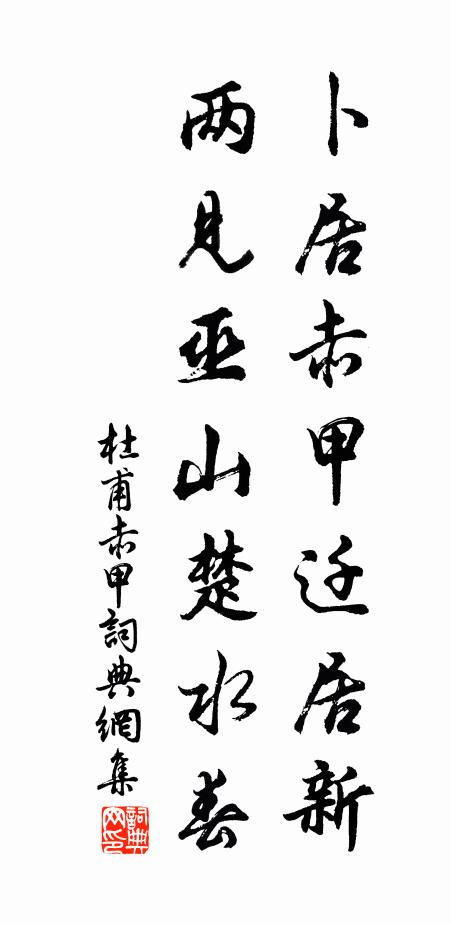 卜居赤甲迁居新
两见巫山楚水春
杜甫赤甲詞典網集
詞典网印